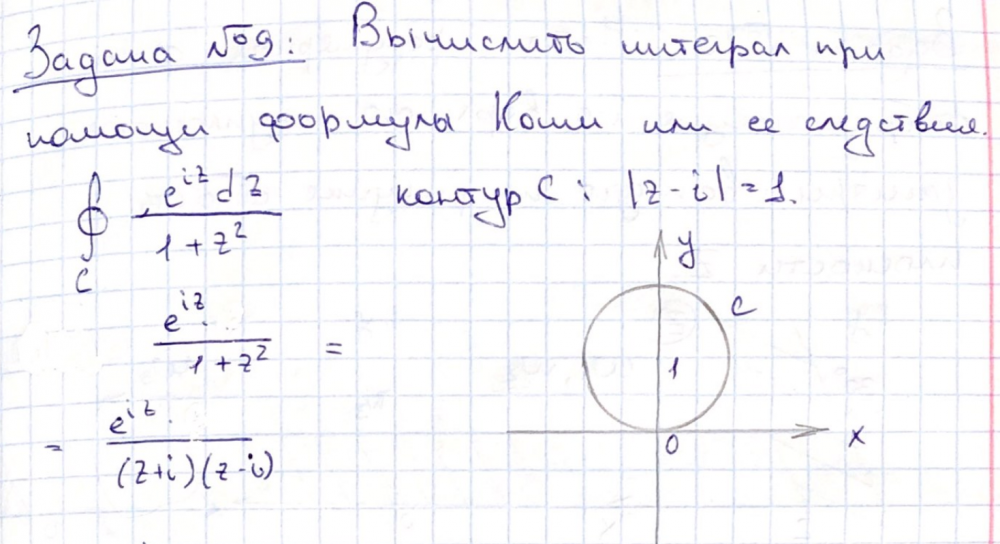 Задача №9: Вычислить интеграл при
помощи формулы Коши или ее следствия.
∮_C e^{iz} dz / (1 + z²) контур C : |z - i| = 1.
e^{iz} / (1 + z²) =
= e^{iz} / ((z+i)(z-i))
y
C
1
0
x